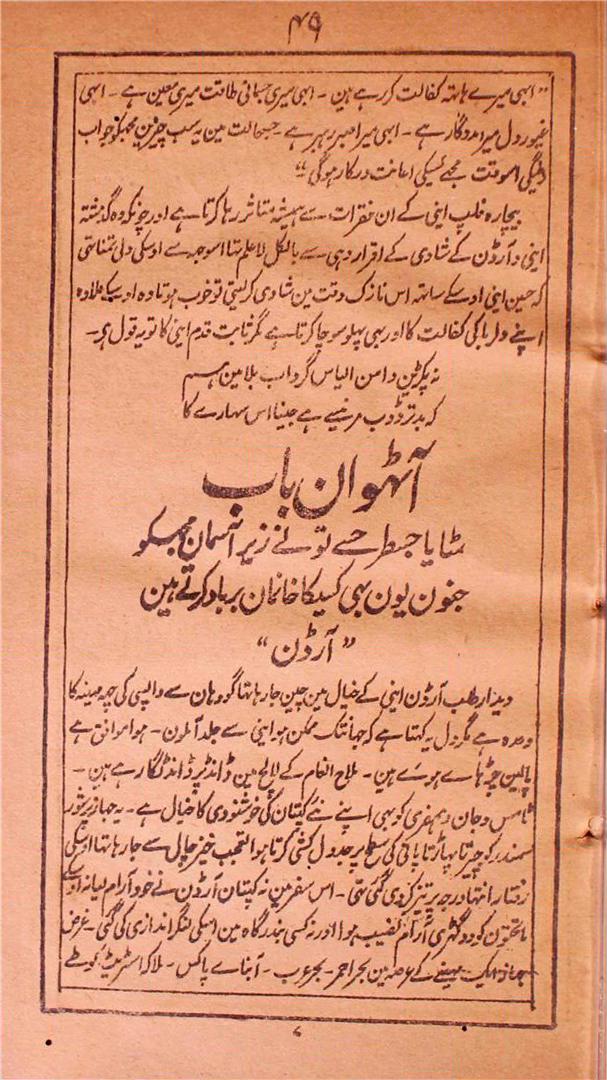 ۴۹
"ابہی میرے ہاتہہ کفالت کر رہے ہین - ابہی میری جسمانی طاقت میری معین ہے - ابہی
غیور دل میرا مددگار ہے - ابہی میرا صبر رہبر ہے - جسحالت مین یہ سب چیزین مجہکو جواب
دینگی اسوقت مجہے کسیکی اعانت درکار ہوگی"
بیچارہ فلپ اینی کے ان فقرات سے ہمیشہ متاثر رہا کرتا ہے اور چونکہ وہ گذشتہ
اینی و آرڈن کے شادی کے اقراردہی سے بالکل لا علم تہا اسوجہ سے اوسکی دلی تمنا تہی
کہ حسین اینی اوسکے ساتہہ اس نازک وقت مین شادی کر لیتی تو خوب ہوتا وہ اوسکے علاوہ
اپنے دلربا کی کفالت کا اور بہی پہلو سوچا کرتا ہے مگر ثابت قدم اینی کا تو یہ قول ہی -
نہ پکڑین دامن الیاس گرداب بلا مین ہم
کہ بدتر ڈوب مرنیسے ہے جینا اس سہارے کا
آٹہوان باب
مٹایا جسطرحسے تونے زیر آسمان مجہکو
جنون یون بہی کسیکا خانمان برباد کرتے ہین
"آرڈن"
دیدار طلب آرڈن اینی کے خیال مین چین جا رہا تہا گو وہان سے واپسی کی چہہ مہینہ کا
وعدہ ہے مگر دل یہ کہتا ہے کہ جہانتک ممکن ہو اینی سے جلد آملون - ہوا موافق ہے
پالین چڑہاے ہوے ہین - ملاح انعام کے لالچ مین ڈانڈ پر ڈانڈ لگا رہے ہین -
ٹامس و جان و ہمفری کو بہی اپنے نئے کپتان کی خوشنودی کا خیال ہے - یہ جہاز پر شور
سمندر کو چیرتا پہاڑتا پانی کی سطح پر جدول کشی کرتا ہوا تعجب خیز چال سے جا رہا تہا اوسکی
رفتار انتہا درجہ پر تیز کر دی گئی تہی - اس سفر مین نہ کپتان آرڈن نے خود آرام لیا نہ اوسکے
ماتحتون کو دو گہڑی آرام نصیب ہوا اور نہ کسی بندرگاہ مین اسکی لنگر اندازی کی گئی - غرض
جہاز ایک مہینے کے عرصہ مین بحر احمر - بحر عرب - آبناے پاکس - ملاکا اسٹریٹ کو طے